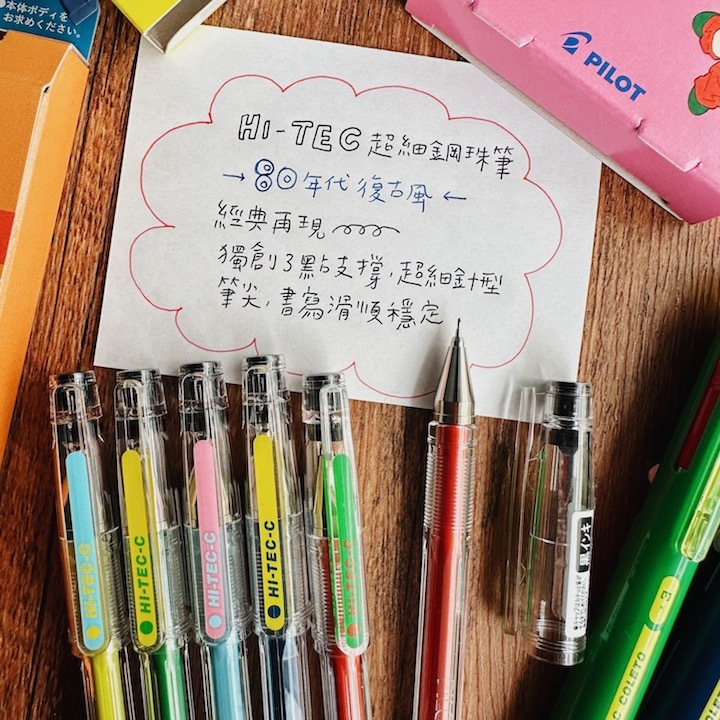 ●本体ボディを
お求めください。
PILOT
HI-TEC 超細鋼珠筆
→ 80年代 復古風 ←
經典再現
獨創3點支撐,超細針型
筆尖,書寫滑順穩定
HI-TEC-C
HI-TEC-C
HI-TEC-C
HI-TEC-C
HI-TEC-C
C COLETO 3